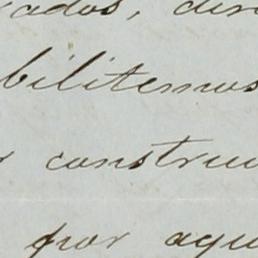 iados, dir
bilitemos
r constru
por aqu